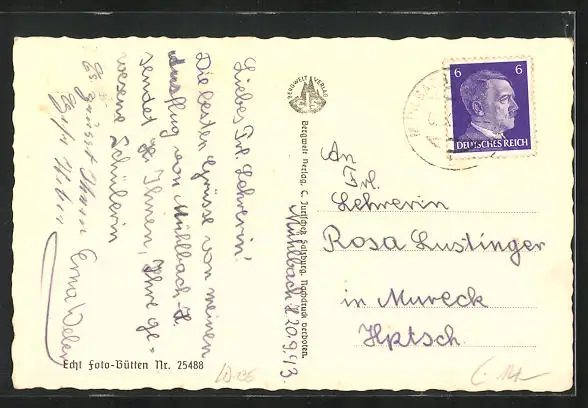 Mühlbach H 20.9.43.
Liebes Frl. Lehrerin!
Die besten Grüsse von meinen
Ausflug von Mühlbach H.
sendet Ihnen, Ihre ge-
wesene Schülerin
Erna Weber
Es grüsst Ihnen
BERGWELT VERLAG
Bergwelt Verlag, C. Jurischek, Salzburg. Nachdruck verboten.
6 6
DEUTSCHES REICH
An
Frl.
Lehrerin
Rosa Lustinger
in Mureck
Hptsch.
Echt Foto-Bütten Nr. 25488